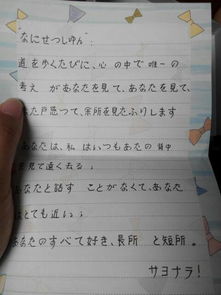 なにせつしゆん":
道を歩くたびに、心の中で唯一の
考え があなたを見て、あなたを見て、
た戸思って、余所を見たふりします
あなたは、私 はいつもあなたの背中
を見て遠く去る;
あなたと話す ことがなくて、あなた
はとても近い;
あなたのすべて好き、長所 と短所。
サヨナラ!